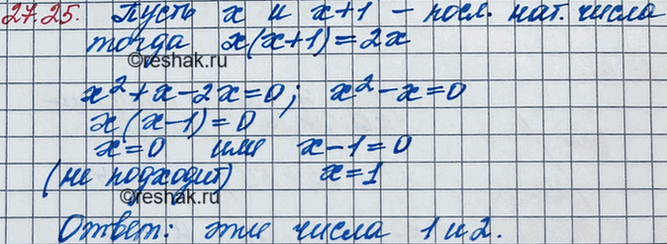 27.25. Пусть x и x+1 – посл. нат. числа
тогда x(x+1)=2x
©reshak.ru
x²+x-2x=0; x²-x=0
x(x-1)=0
x=0 или x-1=0
(не подходит) x=1
©reshak.ru
Ответ: эти числа 1 и 2.